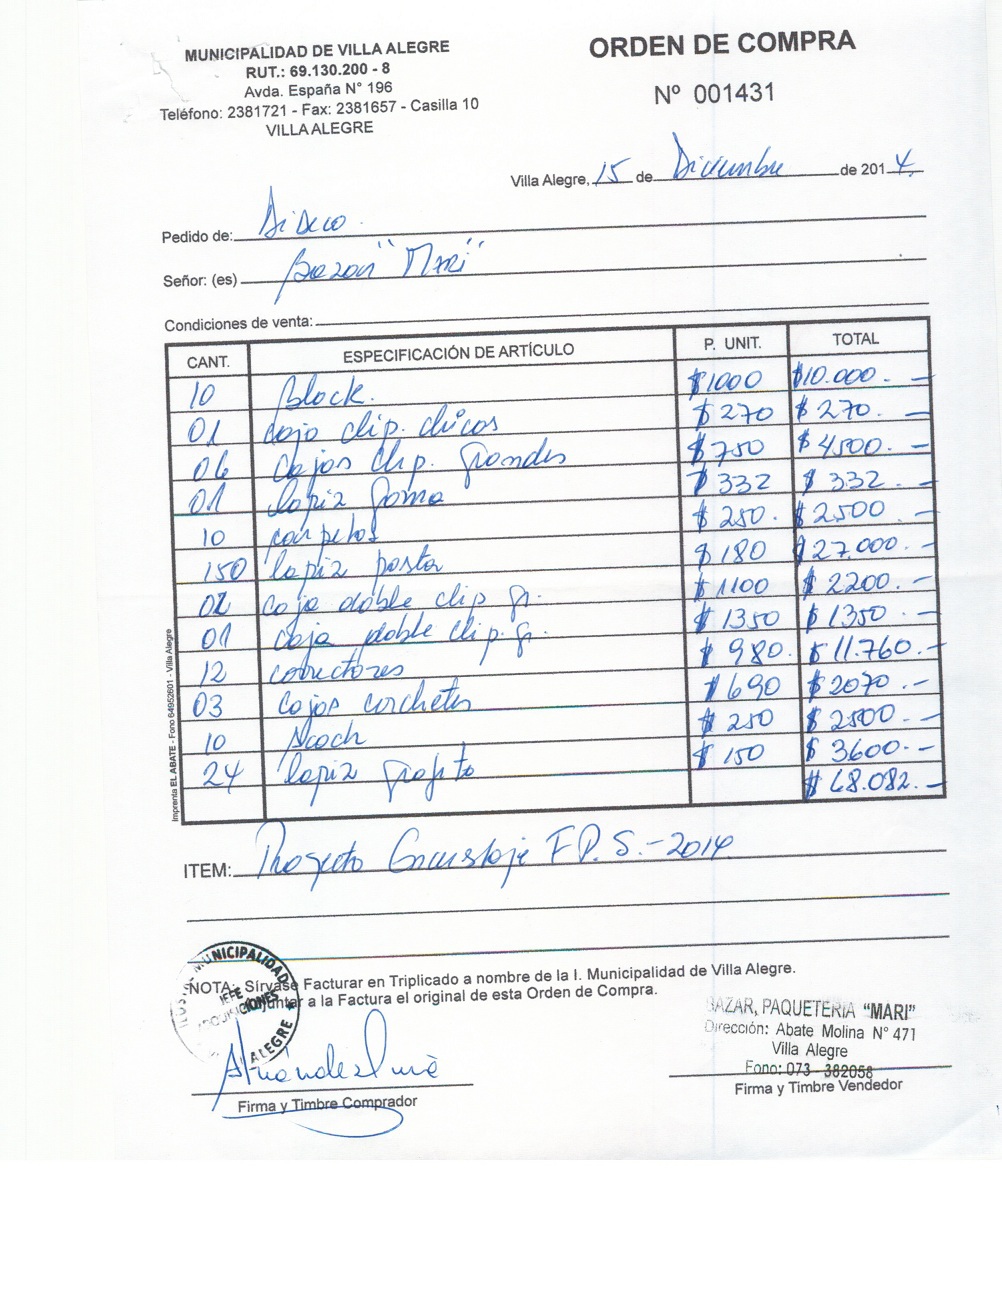 MUNICIPALIDAD DE VILLA ALEGRE
RUT.: 69.130.200 - 8
Avda. España N° 196
Teléfono: 2381721 - Fax: 2381657 - Casilla 10
VILLA ALEGRE
ORDEN DE COMPRA
Nº 001431
Villa Alegre, 15 de Diciembre de 2014.
Pedido de: Dideco.
Señor: (es) Bazar "MARI"
Condiciones de venta:
CANT. ESPECIFICACIÓN DE ARTÍCULO P. UNIT. TOTAL
10 Block. $1000 $10.000.-
01 caja clip. chicos $270 $270.-
06 cajas clip. grandes $750 $4500.-
01 lapiz goma $332 $332.-
10 carpetas $250.- $2500.-
150 lapiz pasta $180 $27.000.-
02 caja doble clip gr. $1100 $2200.-
01 caja doble clip. gr. $1350 $1350.-
12 correctores $980. $11.760.-
03 cajas corchetes $690 $2070.-
10 Scoch $250 $2500.-
24 lapiz grafito $150 $3600.-
$68.082.-
Imprenta EL ABATE - Fono 64952601 - Villa Alegre
ITEM: Proyecto Encuestaje F.P.S.-2014
NOTA: Sírvase Facturar en Triplicado a nombre de la I. Municipalidad de Villa Alegre.
Adjuntar a la Factura el original de esta Orden de Compra.
MUNICIPALIDAD
JEFE
ADQUISICIONES
ALEGRE
Firma y Timbre Comprador
BAZAR, PAQUETERIA "MARI"
Dirección: Abate Molina N° 471
Villa Alegre
Fono: 073 - 382058
Firma y Timbre Vendedor